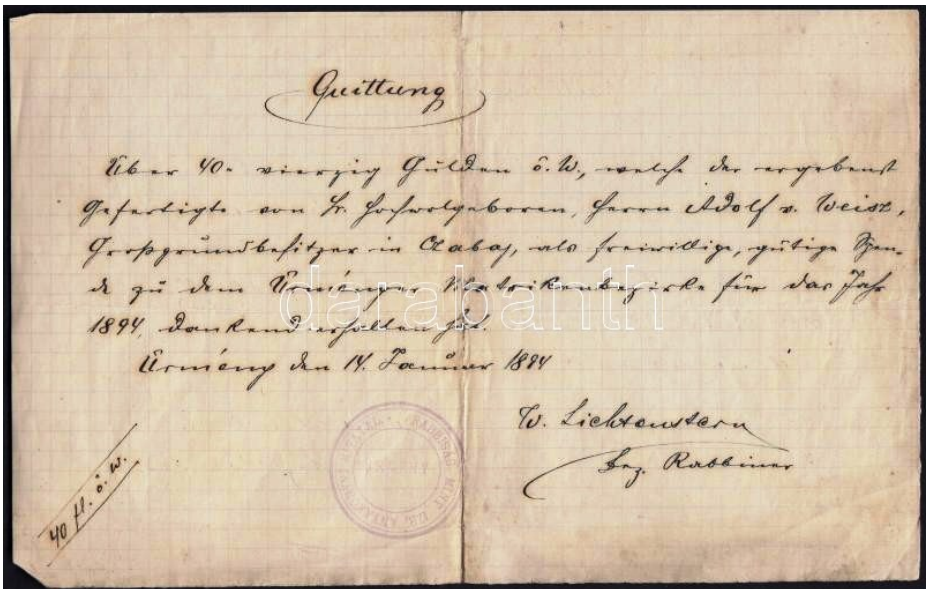 Quittung
Über 40- vierzig Gulden ö. W., welche der ergebenst
Gefertigte von Sr. Hochwolgeboren, Herrn Adolf v. Weisz,
Großgrundbesitzer in Aabaj, als freiwillige, gütige Spen-
de zu dem Ürményer Matrikenbezirke für das Jahr
1894, dankend erhalten hat.
Ürmény den 14. Januar 1894
W. Lichtenstern
Bez. Rabbiner
40 fl. ö. W.
darabanth